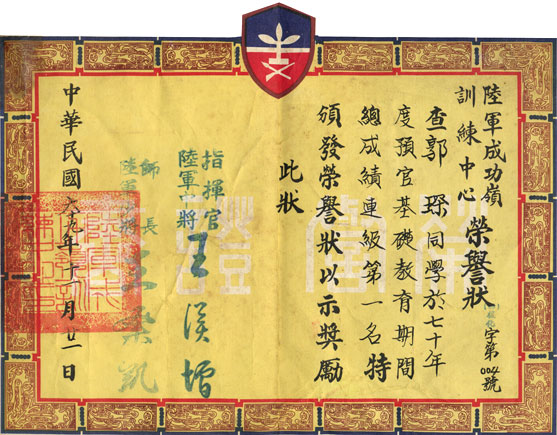 陸軍成功嶺
訓練中心
榮譽狀
字第004號
查郭琛同學於七十年
度預官基礎教育期間
總成績連級第一名特
頒發榮譽狀以示獎勵
此狀
指揮官
陸軍中將
王
師長
陸軍少將
中華民國六十九年十一月廿一日